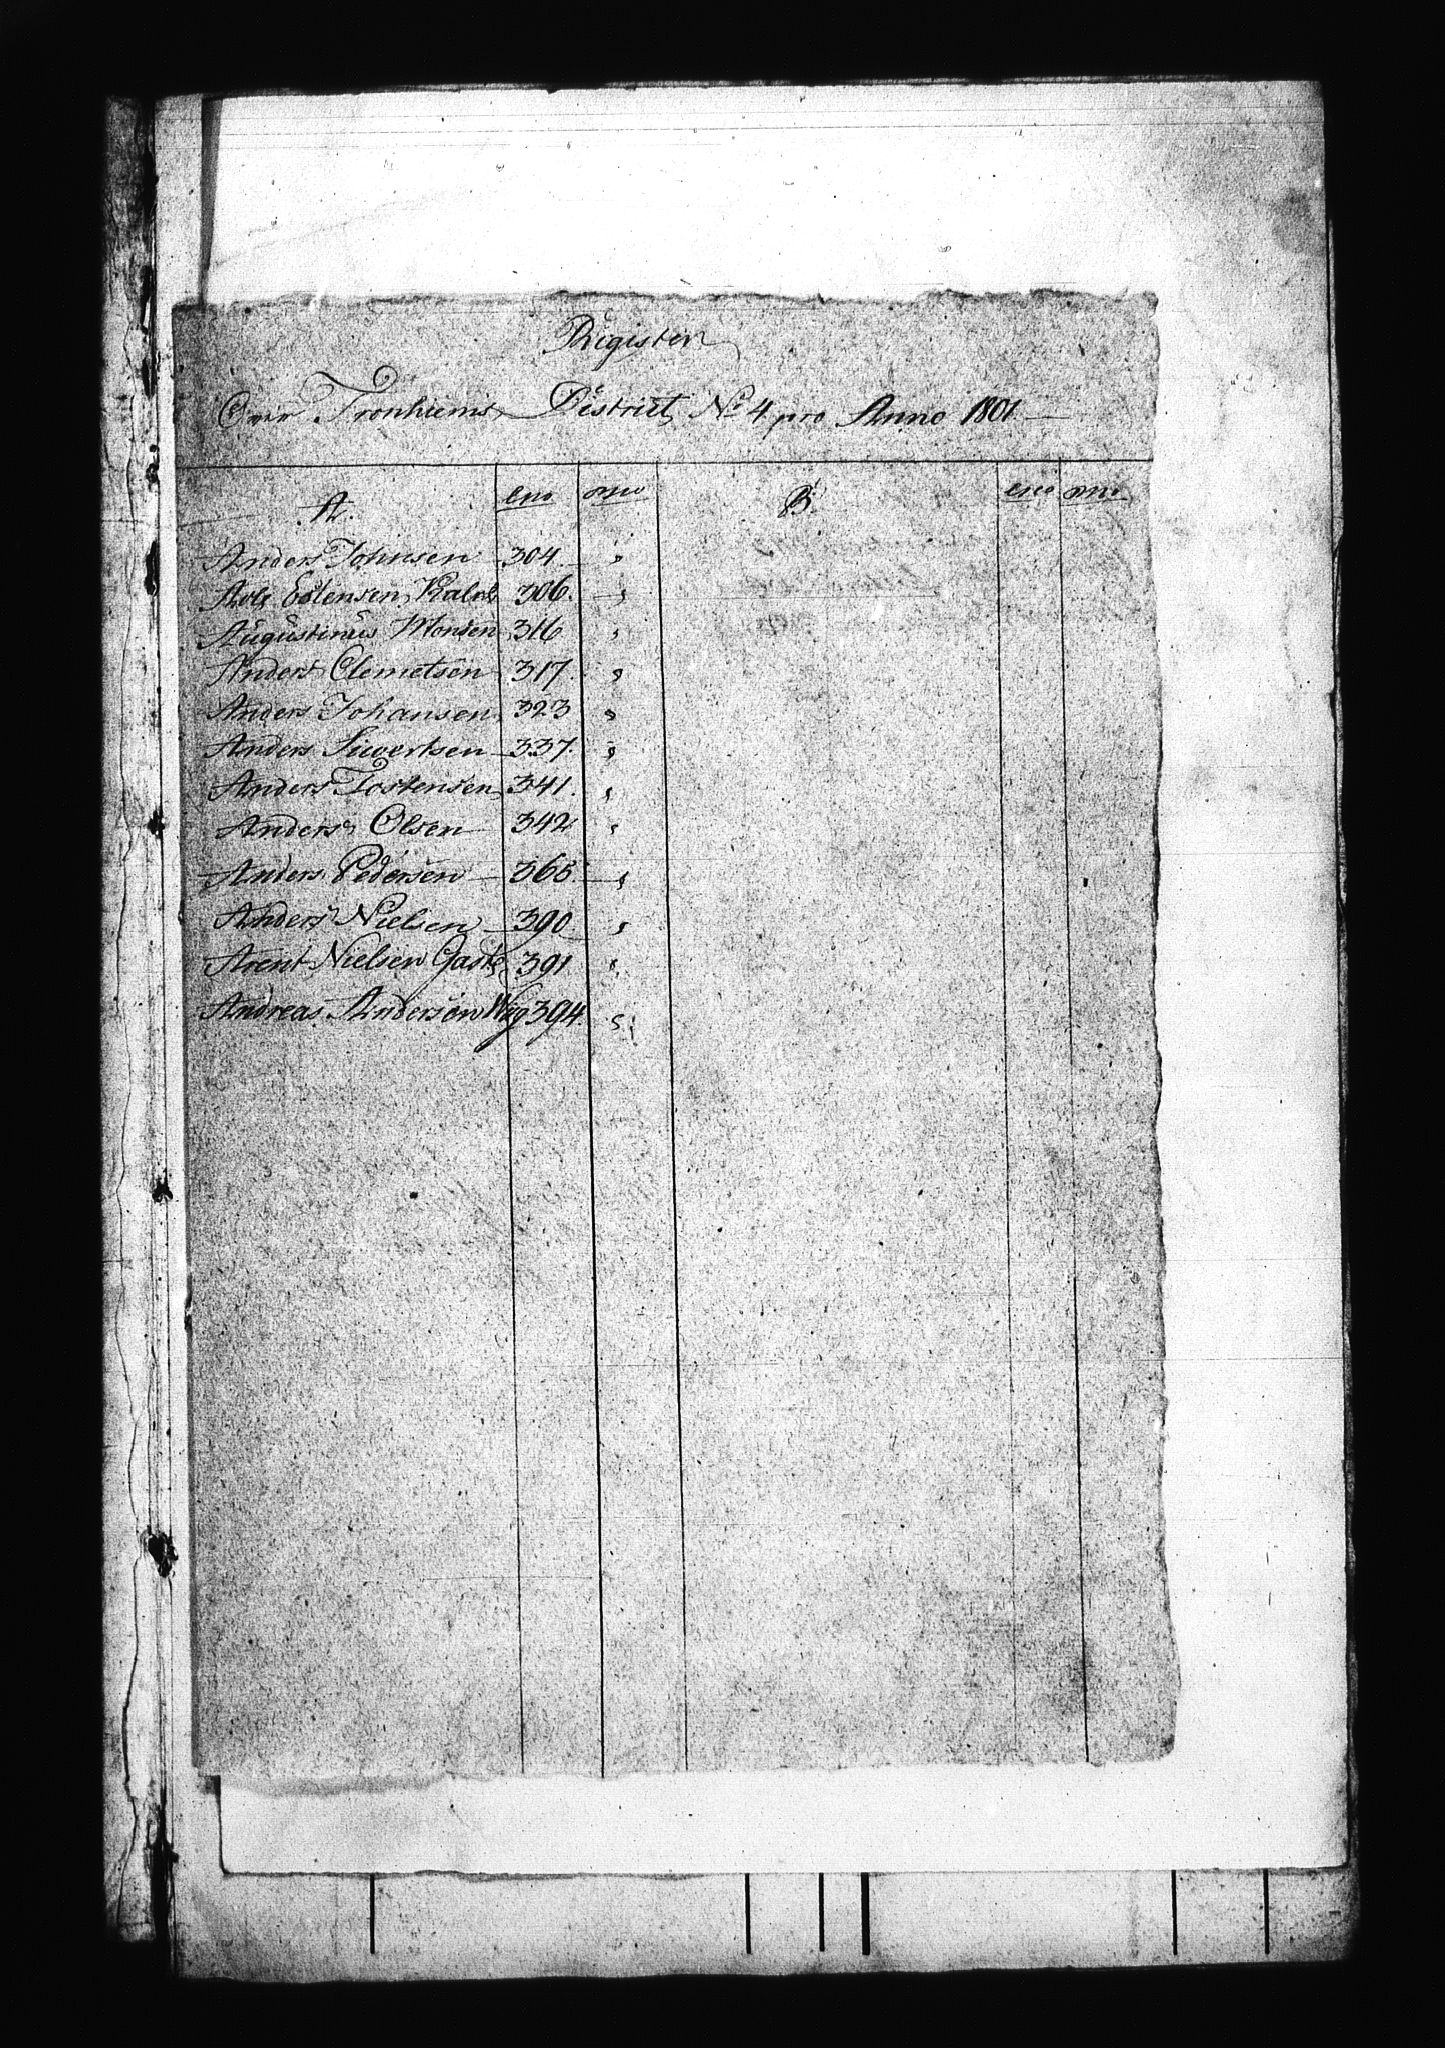 Register
Over Tronhiems District No 4 pro Anno 1801
A. eno omo B. eno omo
Anders Johnsen 304. "
Aole Estensen 306. "
Augustinus Monsen 316 "
Anders Clemetsen 317. "
Anders Johansen 323 "
Anders Siwertsen 337. "
Anders Tostensen 341. "
Anders Olsen 342 "
Anders Pedersen 365. "
Anders Nielsen 390 "
Arent Nielsen 391 "
Andreas Andersen Wig 394. "